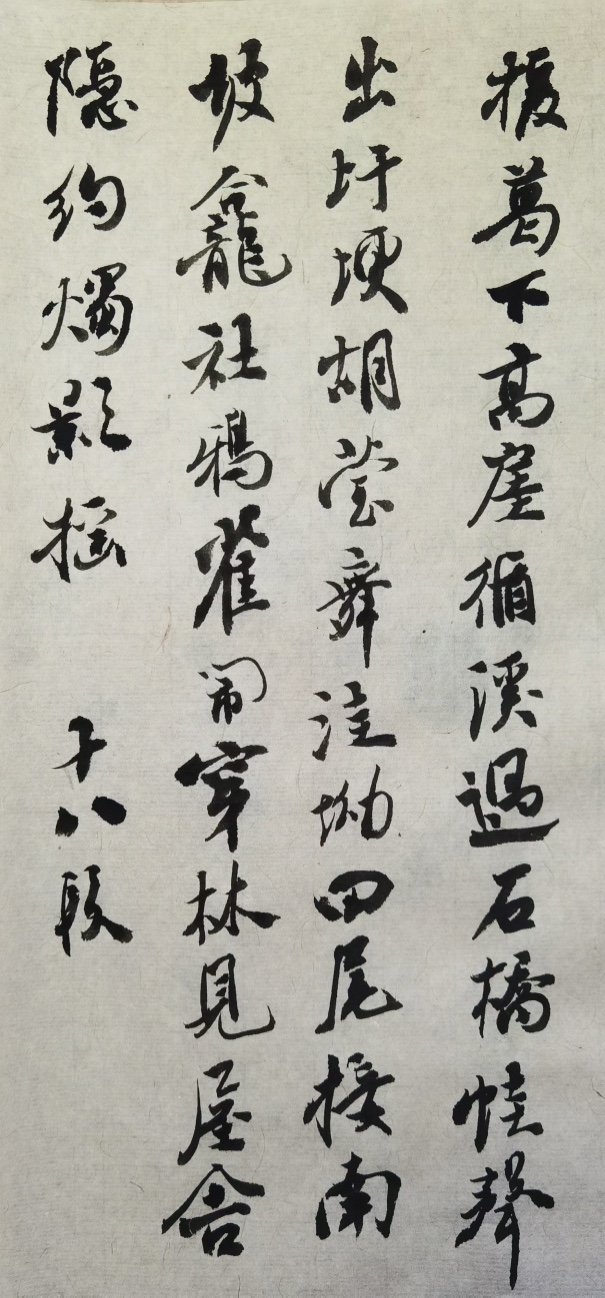 援葛下高崖循溪過石橋蛙聲
出圩埂胡萤舞洼坳田尾接南
坡龕社鴉雀闹穿林見屋舍
隱約燭影摇 十八段